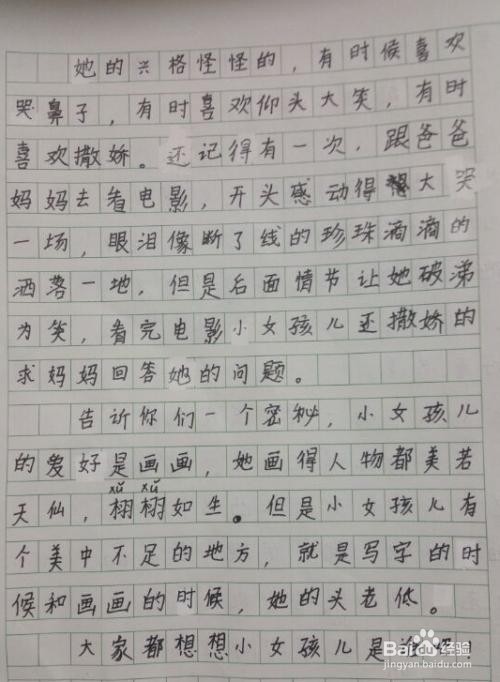 她的兴格怪怪的，有时候喜欢
哭鼻子，有时喜欢仰头大笑，有时
喜欢撒娇。还记得有一次，跟爸爸
妈妈去看电影，开头感动得想大哭
一场，眼泪像断了线的珍珠滴滴的
洒落一地，但是后面情节让她破涕
为笑，看完电影小女孩儿还撒娇的
求妈妈回答她的问题。
告诉你们一个密秘，小女孩儿
的爱好是画画，她画得人物都美若
xǔ xǔ
天仙，栩栩如生。但是小女孩儿有
个美中不足的地方，就是写字的时
候和画画的时候，她的头老低。
大家都想想小女孩儿是谁
Baidu经验
jingyan.baidu.com